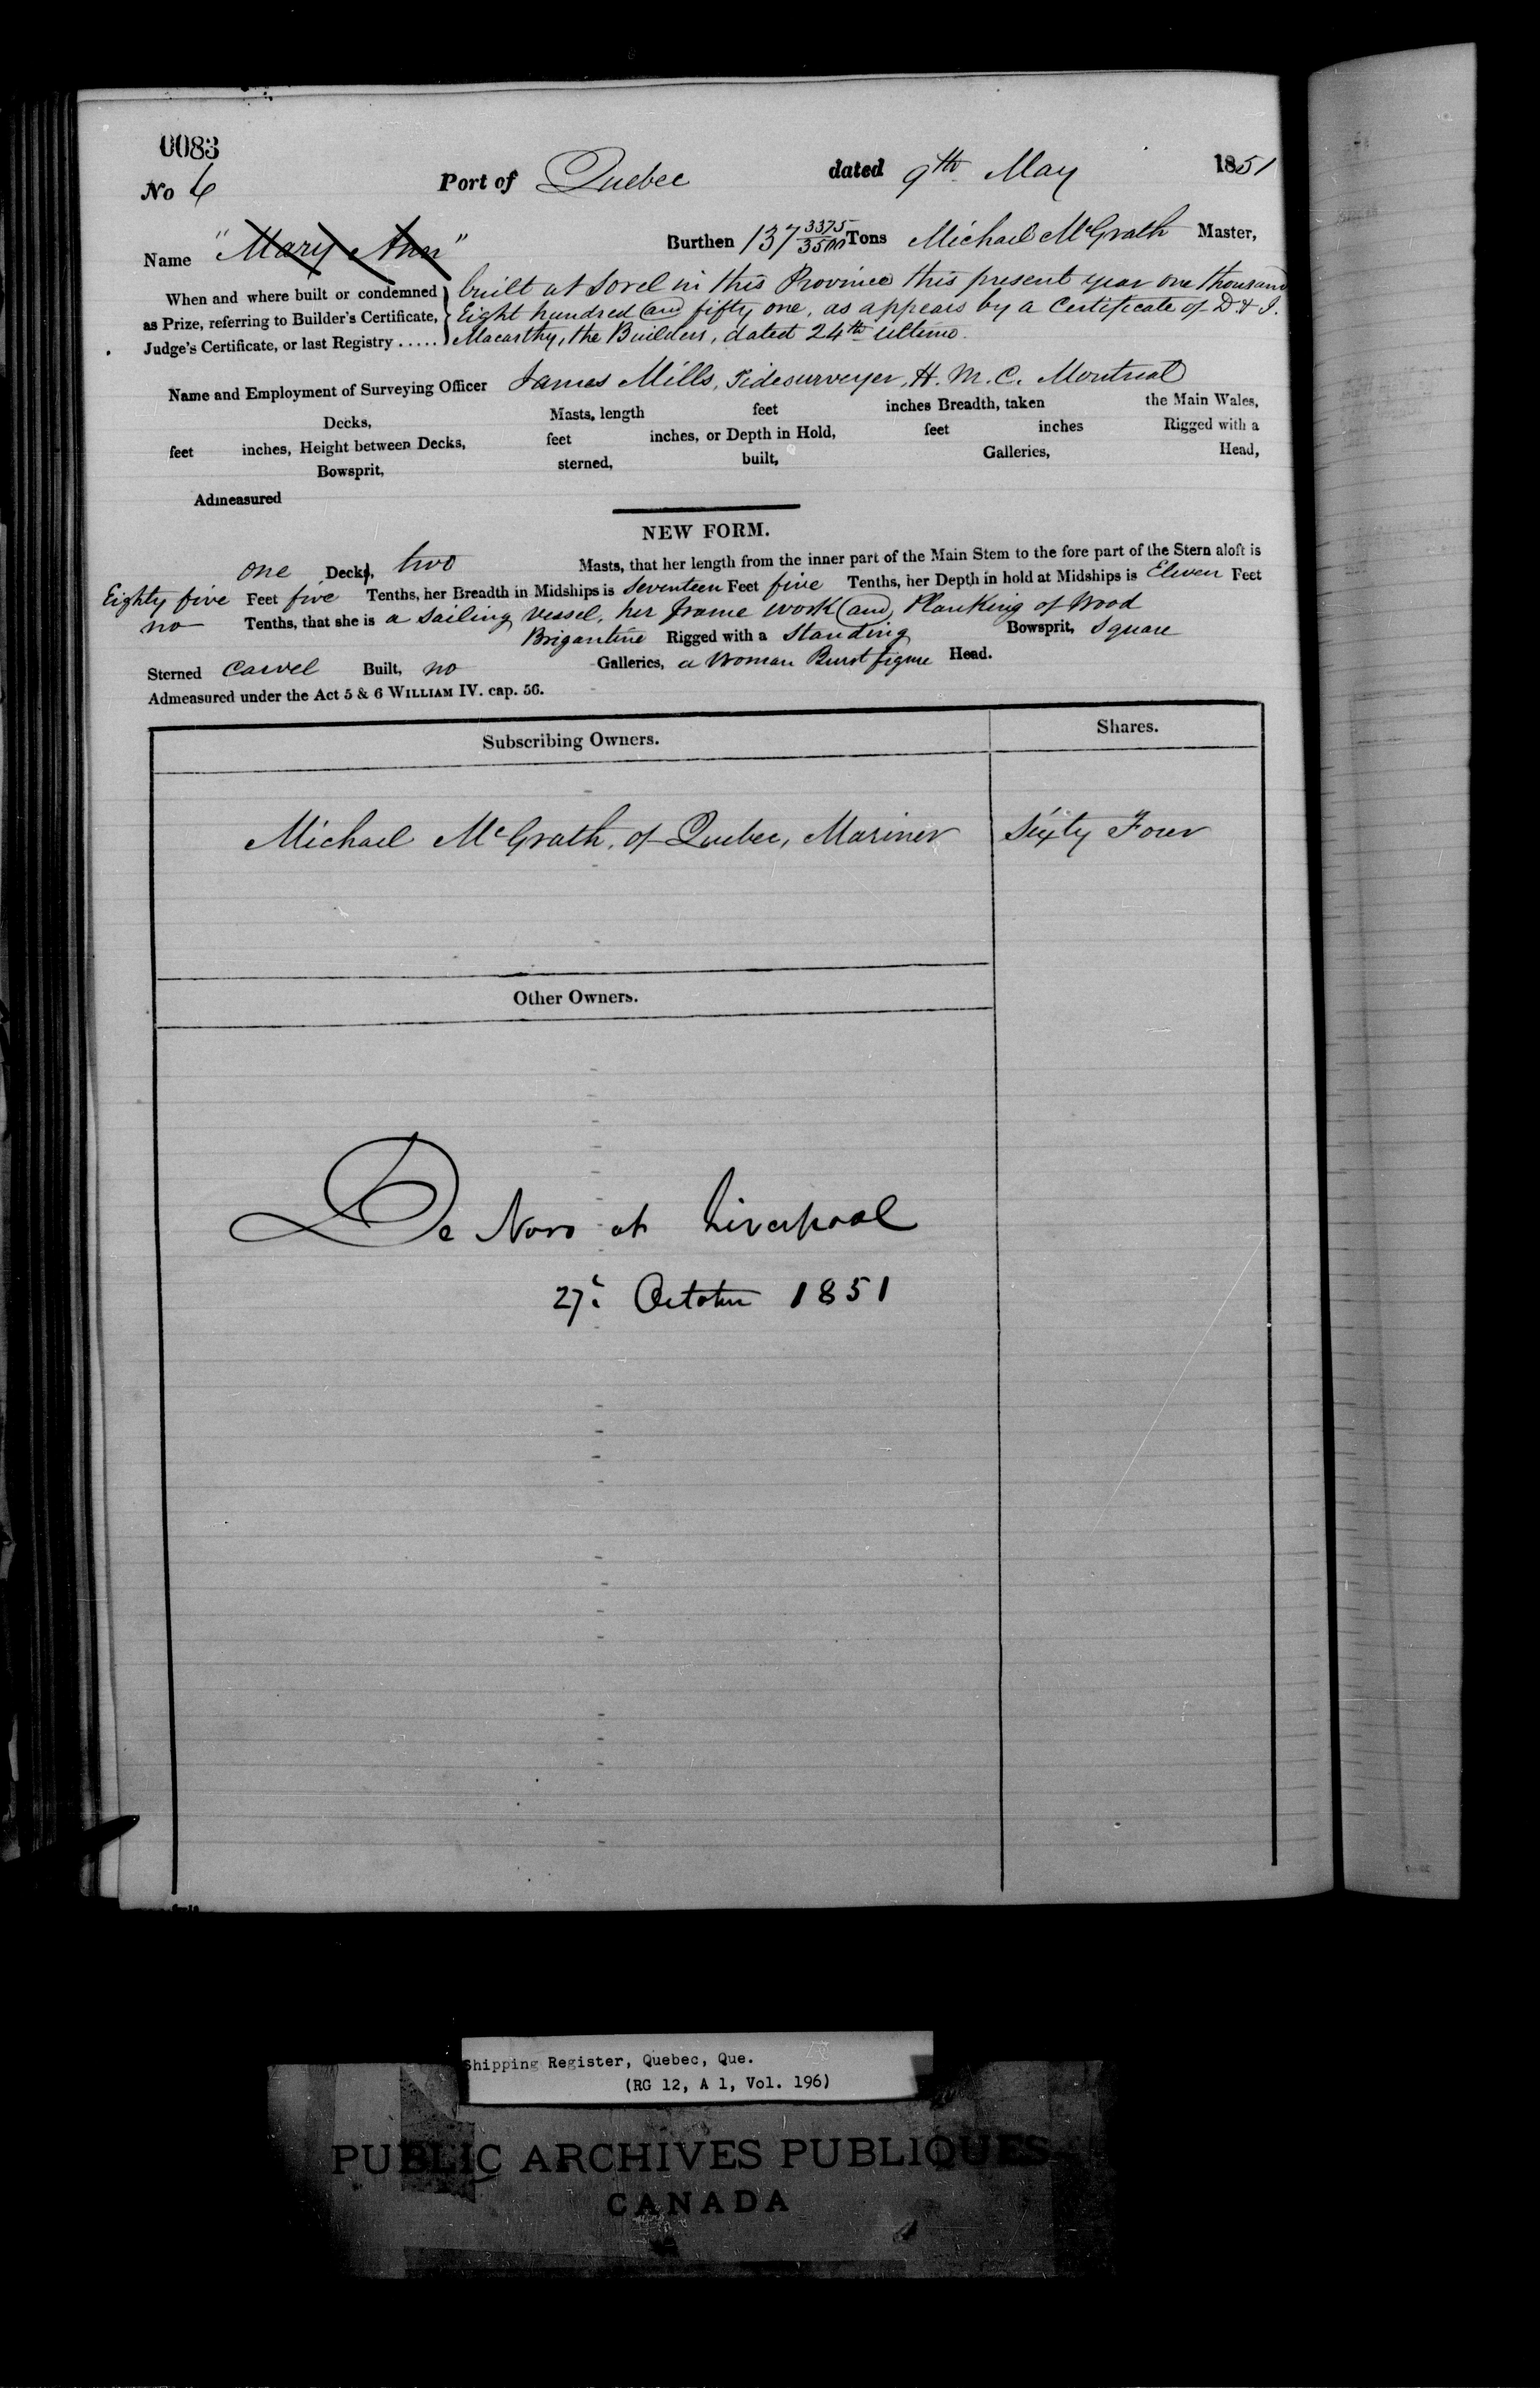 0083
No 6 Port of Quebec dated 9th May 1851
Name "Mary Ann" Burthen 137 3375/3500 Tons Michael McGrath Master,
When and where built or condemned as Prize, referring to Builder's Certificate, Judge's Certificate, or last Registry .....
built at Sorel in this Province this present year one thousand
Eight hundred and fifty one, as appears by a Certificate of D & J.
Macarthy, the Builders, dated 24th Ultimo.
Name and Employment of Surveying Officer James Mills, Tidesurveyer, H. M. C. Montreal
Decks, Masts, length feet inches Breadth, taken the Main Wales,
feet inches, Height between Decks, feet inches, or Depth in Hold, feet inches Rigged with a
Bowsprit, sterned, built, Galleries, Head,
Admeasured
NEW FORM.
one Deck, two Masts, that her length from the inner part of the Main Stem to the fore part of the Stern aloft is
Eighty five Feet five Tenths, her Breadth in Midships is Seventeen Feet five Tenths, her Depth in hold at Midships is Eleven Feet
no Tenths, that she is a Sailing Vessel, her frame work and Planking of Wood
Brigantine Rigged with a Standing Bowsprit, Square
Sterned Carvel Built, no Galleries, a Woman Burst figure Head.
Admeasured under the Act 5 & 6 WILLIAM IV. cap. 56.
Subscribing Owners. Shares.
Michael McGrath, of Quebec, Mariner Sixty Four
Other Owners.
De Novo at Liverpool
27 October 1851
Shipping Register, Quebec, Que.
(RG 12, A 1, Vol. 196)
PUBLIC ARCHIVES PUBLIQUES
CANADA